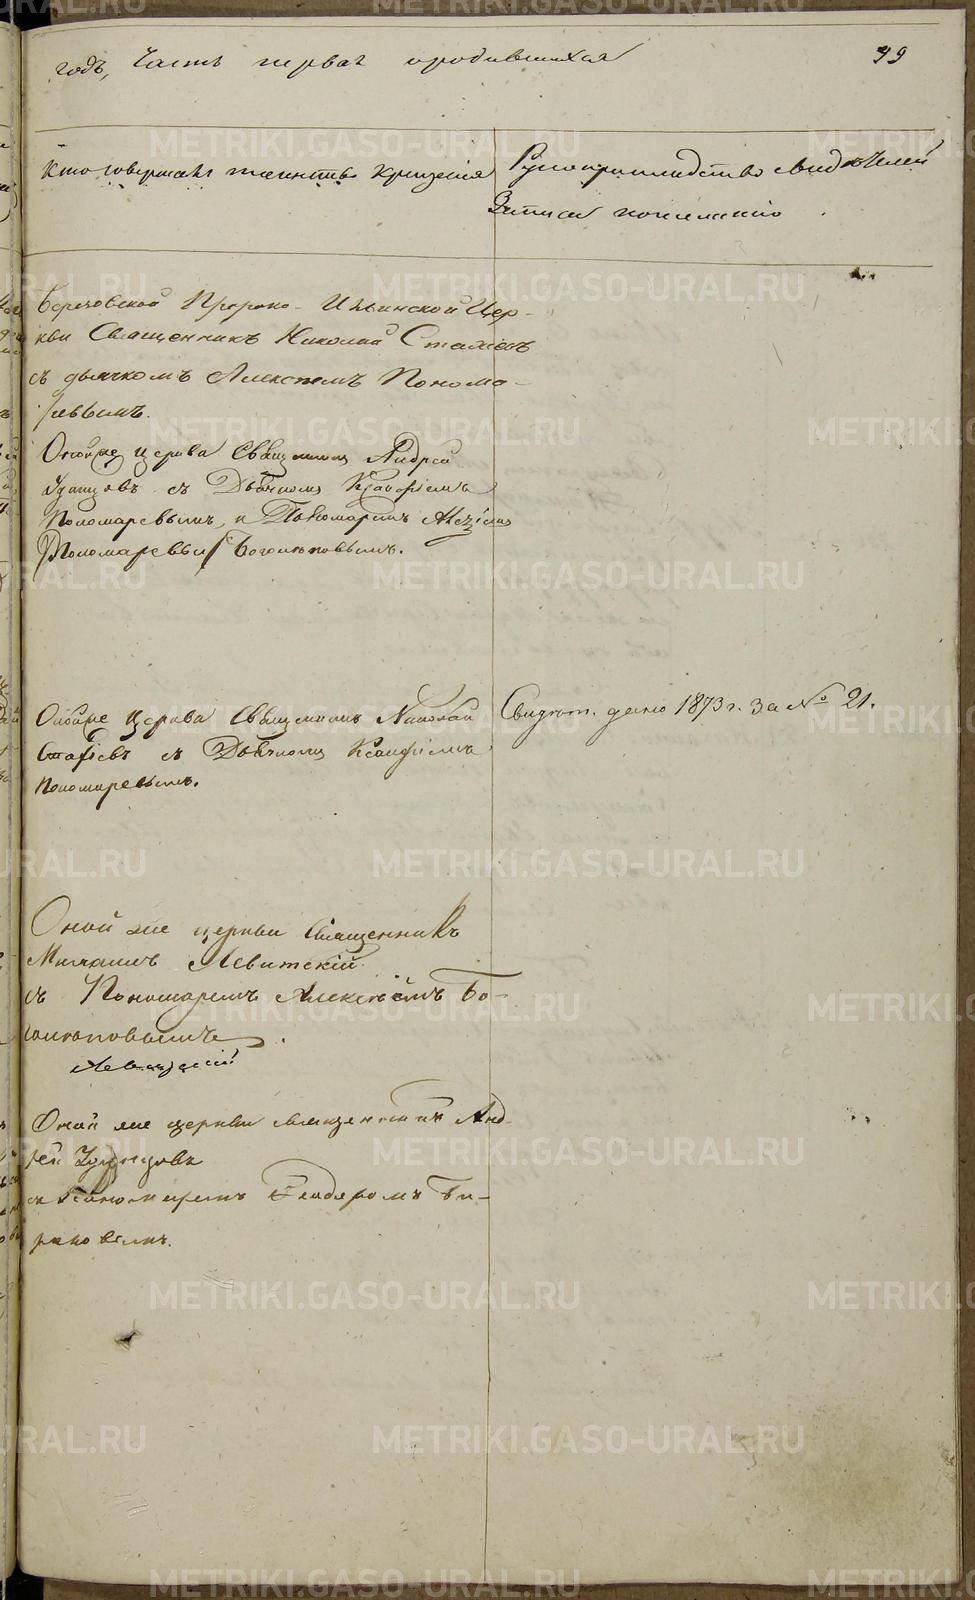 годъ, Часть первая о родившихся
99
Кто совершалъ таинство крещенія
Рукоприкладство свидѣтелей
Записи по желанію
Березовской Пророко-Ильинской Цер-
кви Священникъ Николай Стахіевъ
съ дьячкомъ Алексѣемъ Понома-
ревымъ.
Оной же церкви Священникъ Андрей
Удинцовъ съ Дьячкомъ
Пономаревымъ, и Пономаремъ Алексіемъ
Пономаревы Боголѣповымъ.
Оной же Церкви Священникъ Николай
Стахіевъ съ Дьячкомъ
Пономаревымъ.
Свидѣт. дано 1873 г. за № 21.
Оной же церкви Священникъ
Михаилъ Левитскій
съ Пономаремъ Алексѣемъ Бо-
голѣповымъ.
Левитскій
Оной же церкви священникъ Анд-
рей Удинцовъ
съ Пономаремъ Феодоромъ Би-
рюковымъ.
METRIKI.GASO-URAL.RU